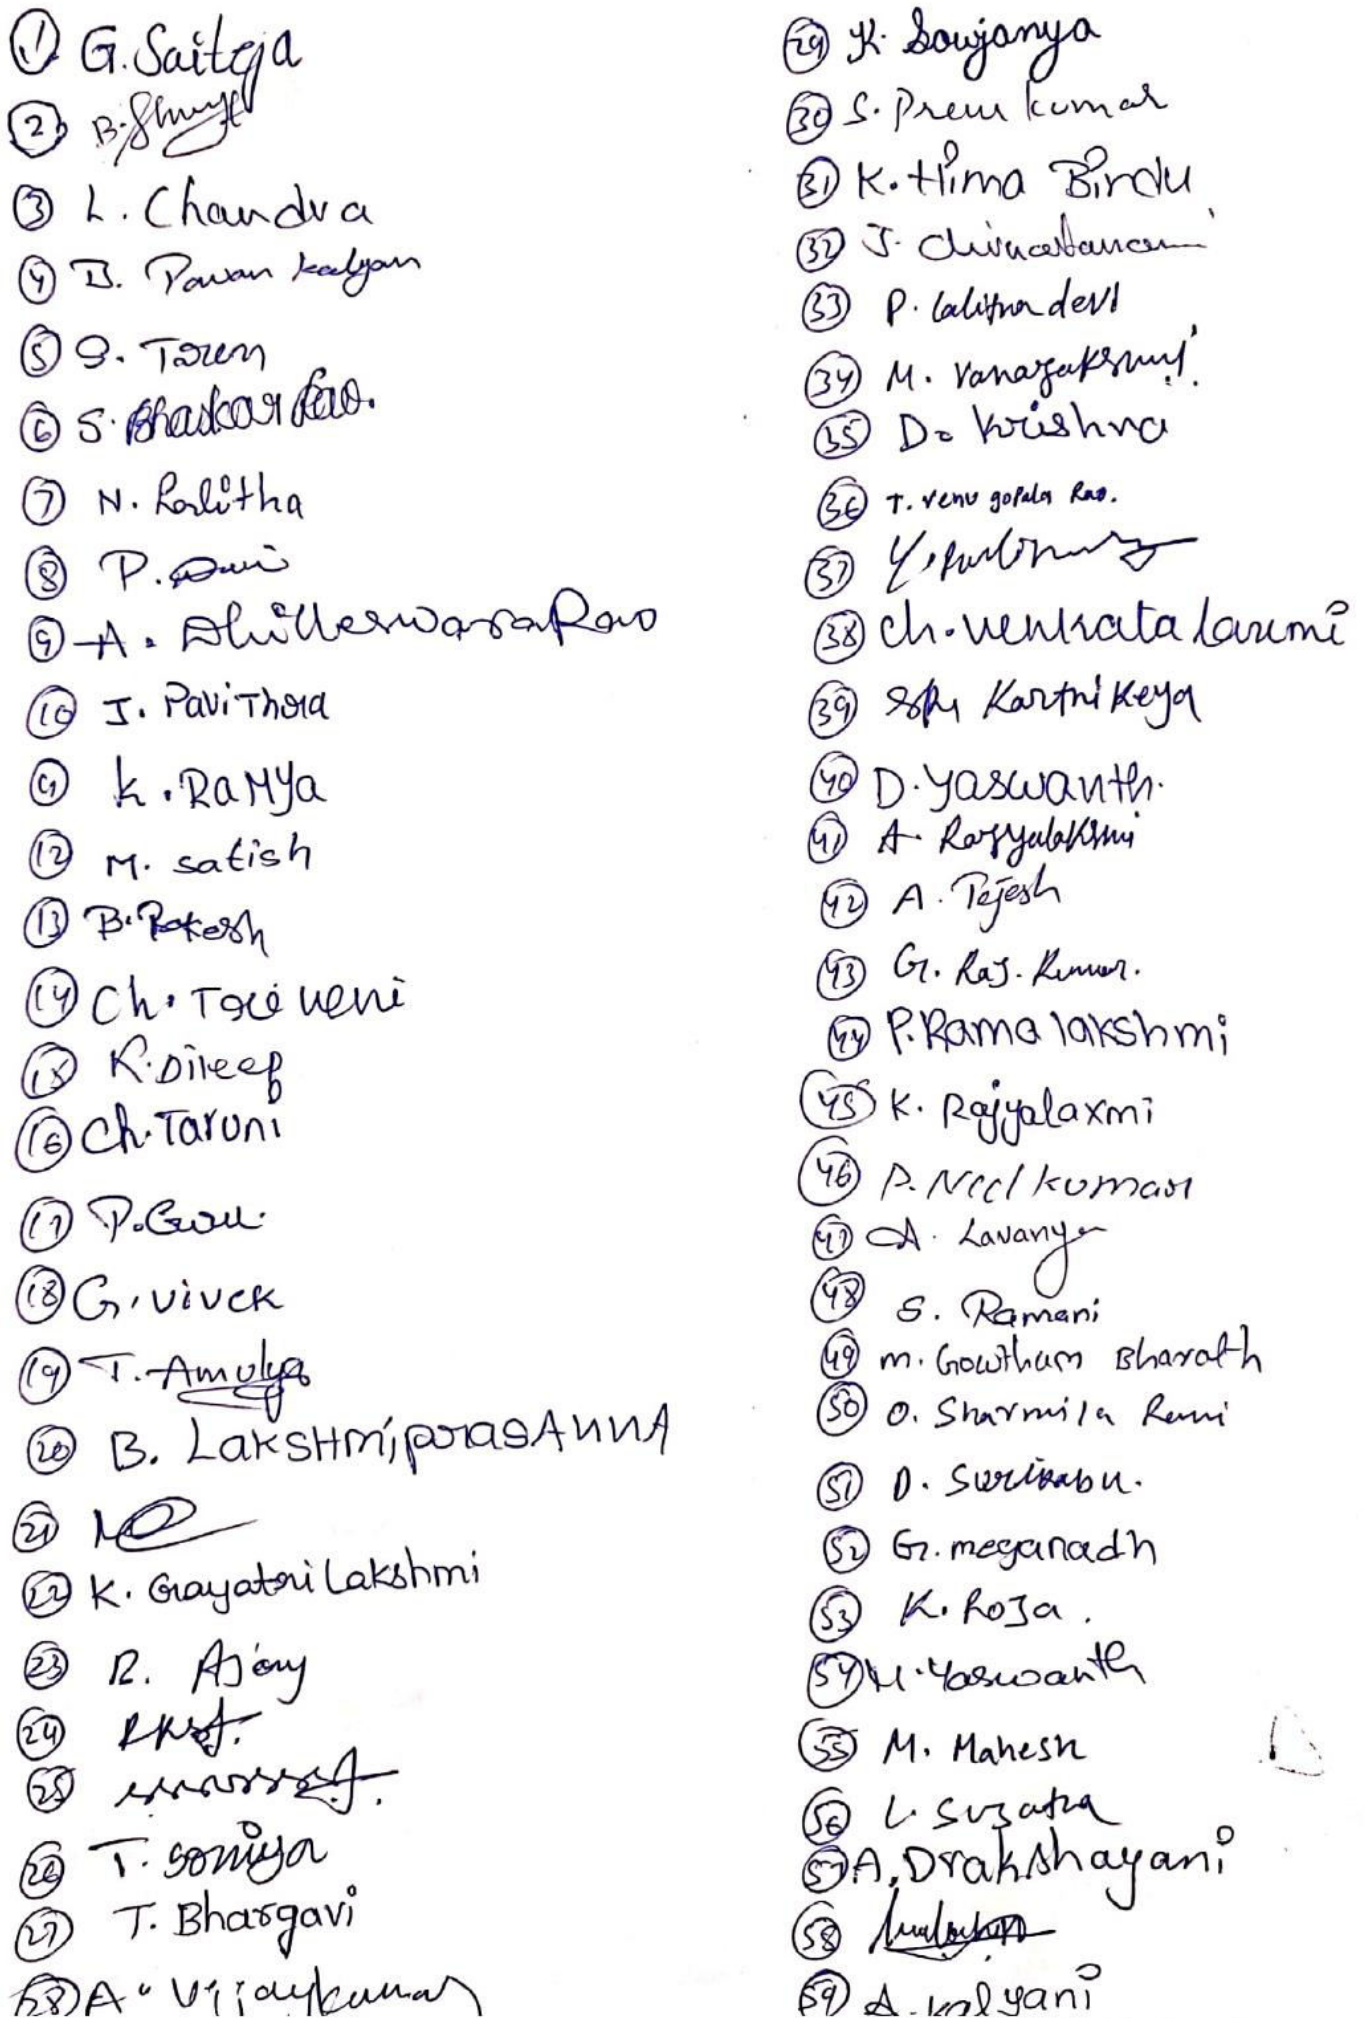 1 G. Saiteja
2 B.
3 L. Chandra
4 B. Pavan kalyan
5 S. Tarun
6 S. Bhaskar Rao.
7 N. Lalitha
8 P.
9 A. DhilleswaraRao
10 J. Pavithra
k. RaMya
12 M. satish
13 B. Rakesh
14 Ch. Triveni
15 K. Dileep
16 Ch. Taruni
17 P.
18 G. vivek
19 T. Amulya
20 B. LakSHmiprasAnnA
21
22 K. Gayatri Lakshmi
23 R. Ajay
24
25
26 T. Soniya
27 T. Bhargavi
28 A. Vijaykumar
29 K. Soujanya
30 S. Prem kumar
31 K. Hima Bindu
32 J.
33 P. lalitha devi
34 M. vanajakshmi
35 D. krishna
36 T. venu gopala Rao.
37 Y.
38 ch. venkata laxmi
39 Karthikeya
40 D. yaswanth.
41 A. Rajyalakshmi
42 A. Tejesh
43 G. Raj. Kumar.
44 P. Rama lakshmi
45 K. Rajyalaxmi
46 P. Neel kumar
47 A. Lavanya
48 S. Ramani
49 m. Gowtham Bharath
50 O. Sharmila Rani
51 D. Suribabu.
52 G. meganadh
53 K. Roja.
54 M. Yaswanth
55 M. Mahesh
56 L. Sujatha
57 A. Drakshayani
58
59 A. kalyani